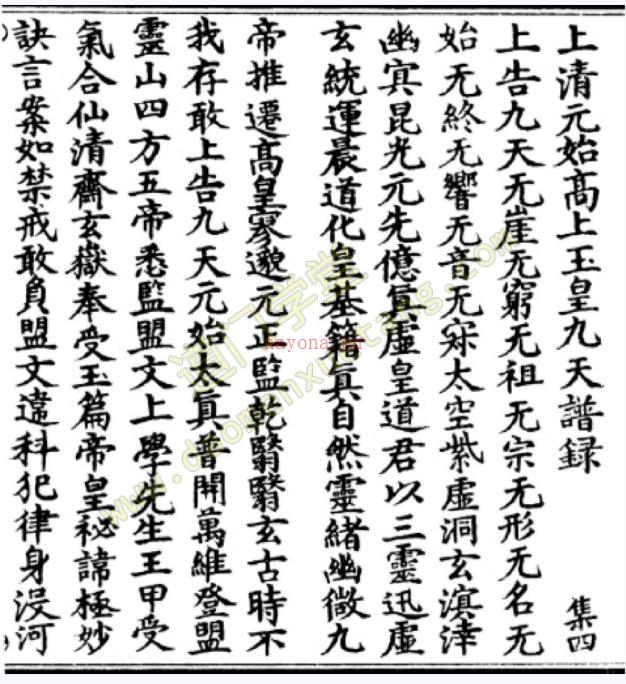 上清元始高上玉皇九天譜録 集四
上告九天无崖无窮无祖无宗无形无名无
始无終无響无音无寂太空紫虛洞玄溟涬
幽冥昆光元先億眞虛皇道君以三靈迅虛
玄統運晨道化皇基籍眞自然靈緒幽微九
帝推遷高皇寥邈元正監乾翳翳玄古時不
我存敢上告九天元始太眞普開萬維登盟
靈山四方五帝悉監盟文上學先生王甲受
氣合仙清齋玄嶽奉受玉篇帝皇秘諱極妙
訣言案如禁戒敢負盟文違科犯律身没河
道门学堂
www.daomenxuetang.com